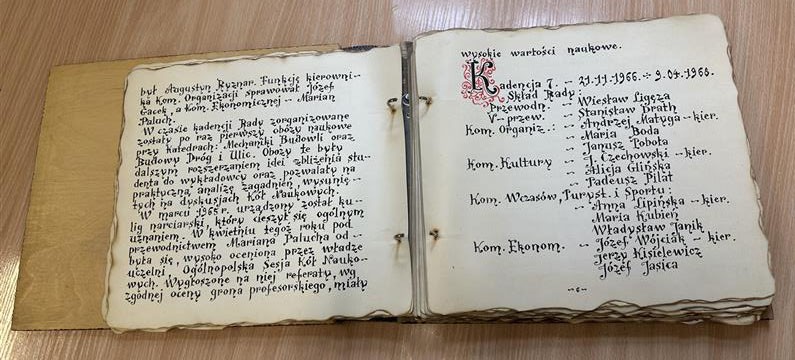 był Augustyn Ryznar. Funkcję kierowni-
ka Kom. Organizacji sprawował Józef
Gacek, a Kom. Ekonomicznej - Marian
Paluch.
W czasie kadencji Rady zorganizowane
zostały po raz pierwszy obozy naukowe
przy Katedrach: Mechaniki Budowli oraz
Budowy Dróg i Ulic. Obozy te były
dalszym rozszerzaniem idei zbliżenia stu-
denta do wykładowcy oraz pozwalały na
praktyczną analizę zagadnień, wysunię-
tych na dyskusjach Kół Naukowych.
W marcu 1965 r. urządzony został ku-
lig narciarski, który cieszył się ogólnym
uznaniem. W kwietniu tegoż roku pod
przewodnictwem Mariana Palucha od-
była się, wysoko oceniona przez władze
uczelni Ogólnopolska Sesja Kół Nauko-
wych. Wygłoszone na niej referaty, wg
zgodnej oceny grona profesorskiego, miały
wysokie wartości naukowe.
Kadencja 7. - 21.11.1966. ÷ 9.04.1968.
Skład Rady:
Przewodn. - Wiesław Ligęza
V-przew. - Stanisław Brath
Kom. Organiz.: - Andrzej Matyga - kier.
Maria Boda
Janusz Pobota
Kom. Kultury - J. Czechowski - kier.
Alicja Glińska
Tadeusz Pilat
Kom. Wczasów, Turyst. i Sportu:
- Anna Lipińska - kier.
Maria Kubień
Władysław Janik
Kom. Ekonom. - Józef Wójciak - kier.
Jerzy Kisielewicz
Józef Jasica
-6-